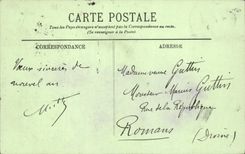 CARTE POSTALE
Tous les Pays étrangers n'acceptent pas la Correspondance au recto.
(Se renseigner à la Poste)
CORRESPONDANCE
ADRESSE
Vœux sincères de
nouvel an
Madame veuve Guttin
Monsieur Marius Guttin
Rue de la République
Romans
(Drôme)